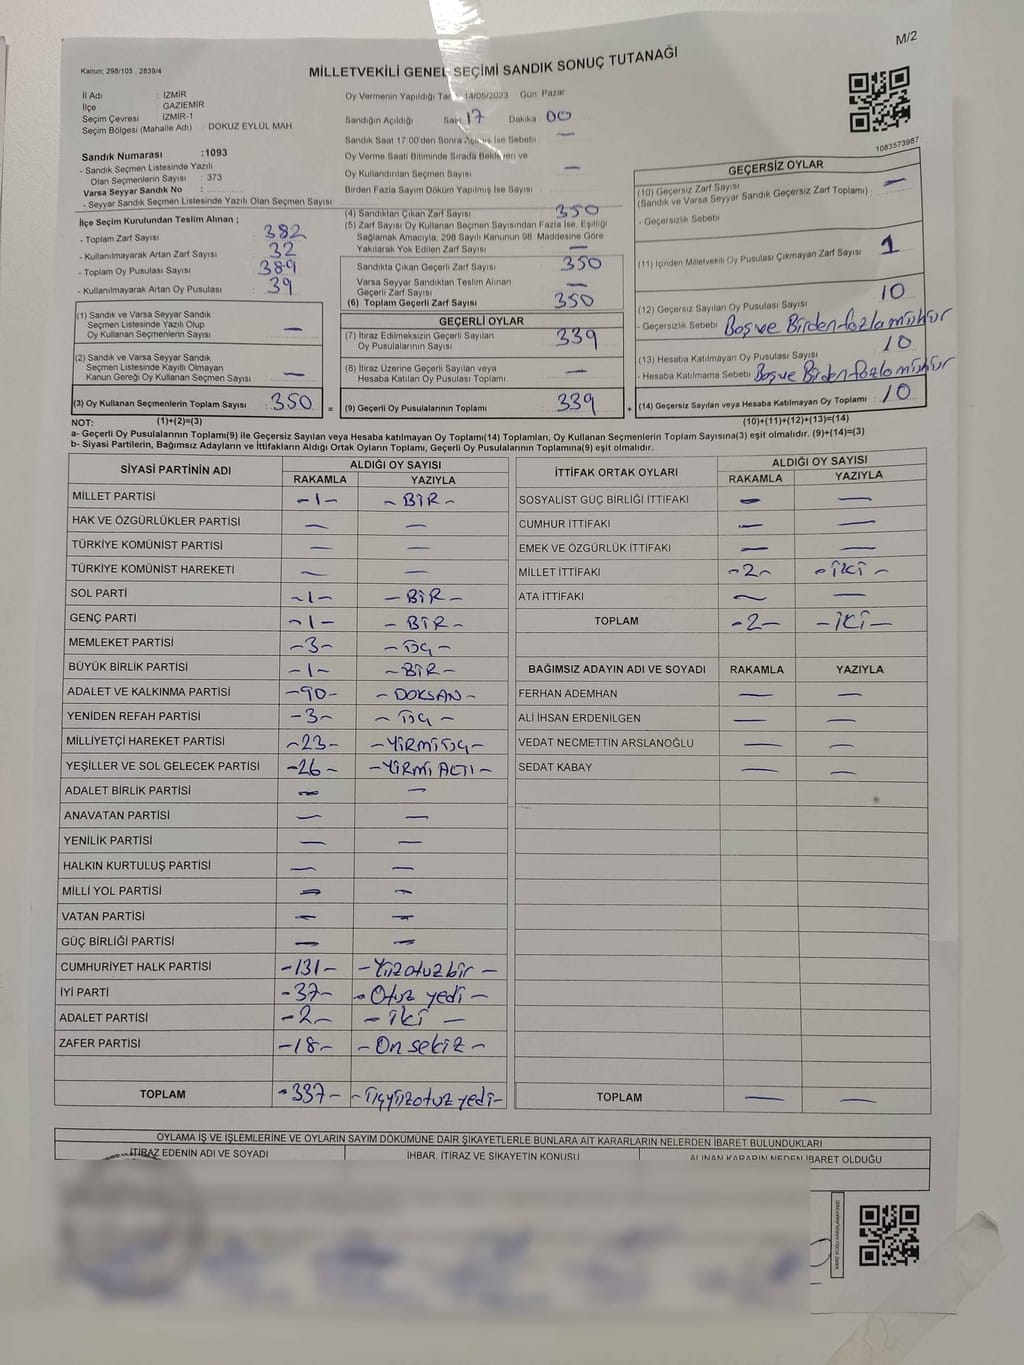 M/2
Kanun: 298/105 , 2839/4
MİLLETVEKİLİ GENEL SEÇİMİ SANDIK SONUÇ TUTANAĞI
İl Adı : İZMİR
İlçe : GAZİEMİR
Seçim Çevresi : İZMİR-1
Seçim Bölgesi (Mahalle Adı) : DOKUZ EYLÜL MAH.
Sandık Numarası :1093
- Sandık Seçmen Listesinde Yazılı
Olan Seçmenlerin Sayısı : 373
Varsa Seyyar Sandık No :
- Seyyar Sandık Seçmen Listesinde Yazılı Olan Seçmen Sayısı:
İlçe Seçim Kurulundan Teslim Alınan ;
- Toplam Zarf Sayısı 382
- Kullanılmayarak Artan Zarf Sayısı 32
- Toplam Oy Pusulası Sayısı 389
- Kullanılmayarak Artan Oy Pusulası 39
(1) Sandık ve Varsa Seyyar Sandık
Seçmen Listesinde Yazılı Olup
Oy Kullanan Seçmenlerin Sayısı —
(2) Sandık ve Varsa Seyyar Sandık
Seçmen Listesinde Kayıtlı Olmayan
Kanun Gereği Oy Kullanan Seçmen Sayısı —
(3) Oy Kullanan Seçmenlerin Toplam Sayısı 350 =
Oy Vermenin Yapıldığı 14/05/2023 Gün: Pazar
Sandığın Açıldığı Saat 17 Dakika 00
Sandık Saat 17:00'den Sonra İse Sebebi —
Oy Verme Saati Bitiminde Sırada Bekleyen ve
Oy Kullandırılan Seçmen Sayısı —
Birden Fazla Sayım Döküm Yapılmış İse Sayısı
(4) Sandıktan Çıkan Zarf Sayısı 350
(5) Zarf Sayısı Oy Kullanan Seçmen Sayısından Fazla İse, Eşitliği
Sağlamak Amacıyla; 298 Sayılı Kanunun 98. Maddesine Göre
Yakılarak Yok Edilen Zarf Sayısı —
Sandıkta Çıkan Geçerli Zarf Sayısı 350
Varsa Seyyar Sandıktan Teslim Alınan
Geçerli Zarf Sayısı —
(6) Toplam Geçerli Zarf Sayısı 350
GEÇERLİ OYLAR
(7) İtiraz Edilmeksizin Geçerli Sayılan
Oy Pusulalarının Sayısı 339
(8) İtiraz Üzerine Geçerli Sayılan veya
Hesaba Katılan Oy Pusulası Toplamı —
(9) Geçerli Oy Pusulalarının Toplamı 339 +
1083573987
GEÇERSİZ OYLAR
(10) Geçersiz Zarf Sayısı —
(Sandık ve Varsa Seyyar Sandık Geçersiz Zarf Toplamı)
- Geçersizlik Sebebi
(11) İçinden Milletvekili Oy Pusulası Çıkmayan Zarf Sayısı 1
(12) Geçersiz Sayılan Oy Pusulası Sayısı 10
- Geçersizlik Sebebi Boş ve Birden fazla mühür
(13) Hesaba Katılmayan Oy Pusulası Sayısı 10
- Hesaba Katılmama Sebebi Boş ve Birden fazla mühür
(14) Geçersiz Sayılan veya Hesaba Katılmayan Oy Toplamı 10
NOT: (1)+(2)=(3) (10)+(11)+(12)+(13)=(14)
a- Geçerli Oy Pusulalarının Toplamı(9) ile Geçersiz Sayılan veya Hesaba katılmayan Oy Toplamı(14) Toplamları, Oy Kullanan Seçmenlerin Toplam Sayısına(3) eşit olmalıdır. (9)+(14)=(3)
b- Siyasi Partilerin, Bağımsız Adayların ve İttifakların Aldığı Ortak Oyların Toplamı, Geçerli Oy Pusulalarının Toplamına(9) eşit olmalıdır.
SİYASİ PARTİNİN ADI ALDIĞI OY SAYISI
RAKAMLA YAZIYLA
MİLLET PARTİSİ -1- - BİR -
HAK VE ÖZGÜRLÜKLER PARTİSİ — —
TÜRKİYE KOMÜNİST PARTİSİ — —
TÜRKİYE KOMÜNİST HAREKETİ — —
SOL PARTİ -1- - BİR -
GENÇ PARTİ -1- - BİR -
MEMLEKET PARTİSİ -3- - ÜÇ -
BÜYÜK BİRLİK PARTİSİ -1- - BİR -
ADALET VE KALKINMA PARTİSİ -90- - DOKSAN -
YENİDEN REFAH PARTİSİ -3- - ÜÇ -
MİLLİYETÇİ HAREKET PARTİSİ -23- - YİRMİ ÜÇ -
YEŞİLLER VE SOL GELECEK PARTİSİ -26- - YİRMİ ALTI -
ADALET BİRLİK PARTİSİ — —
ANAVATAN PARTİSİ — —
YENİLİK PARTİSİ — —
HALKIN KURTULUŞ PARTİSİ — —
MİLLİ YOL PARTİSİ — —
VATAN PARTİSİ — —
GÜÇ BİRLİĞİ PARTİSİ — —
CUMHURİYET HALK PARTİSİ -131- - Yüzotuzbir -
İYİ PARTİ -37- - Otuz yedi -
ADALET PARTİSİ -2- - iki -
ZAFER PARTİSİ -18- - On sekiz -
TOPLAM -337- - üçyüzotuz yedi -
İTTİFAK ORTAK OYLARI ALDIĞI OY SAYISI
RAKAMLA YAZIYLA
SOSYALİST GÜÇ BİRLİĞİ İTTİFAKI — —
CUMHUR İTTİFAKI — —
EMEK VE ÖZGÜRLÜK İTTİFAKI — —
MİLLET İTTİFAKI -2- - İKİ -
ATA İTTİFAKI — —
TOPLAM -2- - İKİ -
BAĞIMSIZ ADAYIN ADI VE SOYADI RAKAMLA YAZIYLA
FERHAN ADEMHAN — —
ALİ İHSAN ERDENİLGEN — —
VEDAT NECMETTİN ARSLANOĞLU — —
SEDAT KABAY — —
TOPLAM — —
OYLAMA İŞ VE İŞLEMLERİNE VE OYLARIN SAYIM DÖKÜMÜNE DAİR ŞİKAYETLERLE BUNLARA AİT KARARLARIN NELERDEN İBARET BULUNDUKLARI
İTİRAZ EDENİN ADI VE SOYADI İHBAR, İTİRAZ VE ŞİKAYETİN KONUSU ALINAN KARARIN NEDEN İBARET OLDUĞU